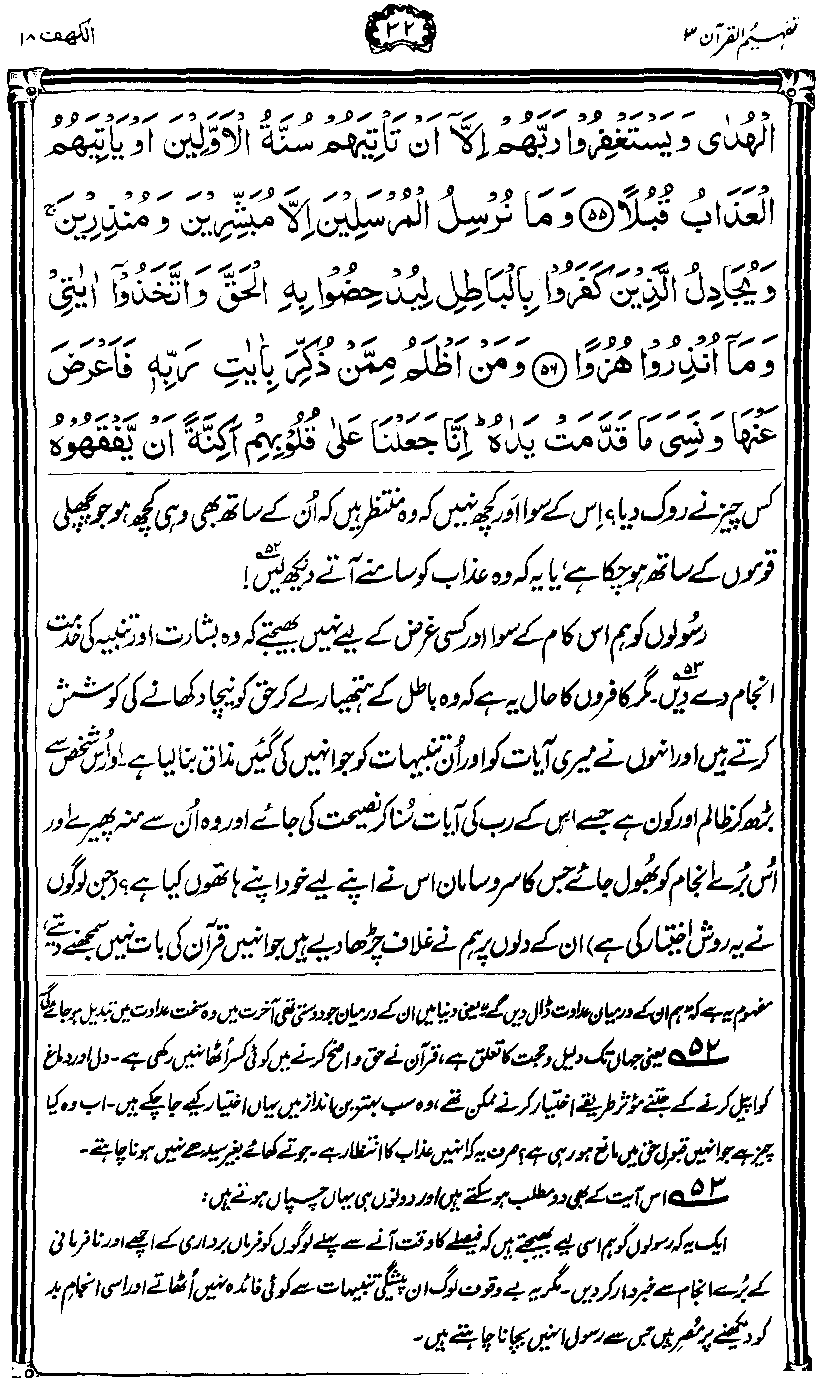 تفہیم القرآن ۳
۳۲
الکہف ۱۸
الْهُدٰى وَيَسْتَغْفِرُوْا رَبَّهُمْ اِلَّاۤ اَنْ تَاْتِيَهُمْ سُنَّةُ الْاَوَّلِيْنَ اَوْ يَاْتِيَهُمُ
الْعَذَابُ قُبُلًا ﴿۵۵﴾ وَمَا نُرْسِلُ الْمُرْسَلِيْنَ اِلَّا مُبَشِّرِيْنَ وَمُنْذِرِيْنَ ۚ
وَيُجَادِلُ الَّذِيْنَ كَفَرُوْا بِالْبَاطِلِ لِيُدْحِضُوْا بِهِ الْحَقَّ وَاتَّخَذُوْۤا اٰيٰتِيْ
وَمَاۤ اُنْذِرُوْا هُزُوًا ﴿۵۶﴾ وَمَنْ اَظْلَمُ مِمَّنْ ذُكِّرَ بِاٰيٰتِ رَبِّهٖ فَاَعْرَضَ
عَنْهَا وَنَسِيَ مَا قَدَّمَتْ يَدٰهُ ؕ اِنَّا جَعَلْنَا عَلٰى قُلُوْبِهِمْ اَكِنَّةً اَنْ يَّفْقَهُوْهُ
کس چیز نے روک دیا؟ اِس کے سوا اَور کچھ نہیں کہ وہ منتظر ہیں کہ اُن کے ساتھ بھی وہی کچھ ہو جو پچھلی
قوموں کے ساتھ ہو چکا ہے، یا یہ کہ وہ عذاب کو سامنے آتے دیکھ لیں۵۲!
رسُولوں کو ہم اس کام کے سوا اور کسی غرض کے لیے نہیں بھیجتے کہ وہ بشارت اور تنبیہ کی خدمت
انجام دے دیں۵۳۔ مگر کافروں کا حال یہ ہے کہ وہ باطل کے ہتھیار لے کر حق کو نیچا دکھانے کی کوشش
کرتے ہیں اور انہوں نے میری آیات کو اور اُن تنبیہات کو جو انہیں کی گئیں مذاق بنا لیا ہے۔ اور اُس شخص سے
بڑھ کر ظالم اور کون ہے جسے اس کے رب کی آیات سُنا کر نصیحت کی جائے اور وہ اُن سے منہ پھیرے اور
اُس بُرے انجام کو بھُول جائے جس کا سر و سامان اس نے اپنے لیے خود اپنے ہاتھوں کیا ہے؟ (جن لوگوں
نے یہ روش اختیار کی ہے) ان کے دلوں پر ہم نے غلاف چڑھا دیے ہیں جو انہیں قرآن کی بات نہیں سمجھنے دیتے،
مفہوم یہ ہے کہ ”ہم ان کے درمیان عداوت ڈال دیں گے“ یعنی دنیا میں ان کے درمیان جو دوستی تھی آخرت میں وہ سخت عداوت میں تبدیل ہو جائے گی۔
۵۲ یعنی جہاں تک دلیل و حجت کا تعلق ہے، قرآن نے حق واضح کرنے میں کوئی کسر اُٹھا نہیں رکھی ہے۔ دل اور دماغ
کو اپیل کرنے کے جتنے مؤثر طریقے اختیار کرنے ممکن تھے، وہ سب بہترین انداز میں یہاں اختیار کیے جا چکے ہیں۔ اب وہ کیا
چیز ہے جو انہیں قبولِ حق میں مانع ہو رہی ہے؟ صرف یہ کہ انہیں عذاب کا انتظار ہے۔ جوتے کھائے بغیر سیدھے نہیں ہونا چاہتے۔
۵۳ اس آیت کے بھی دو مطلب ہو سکتے ہیں اور دونوں ہی یہاں چسپاں ہوتے ہیں:
ایک یہ کہ رسولوں کو ہم اسی لیے بھیجتے ہیں کہ فیصلے کا وقت آنے سے پہلے لوگوں کو فرماں برداری کے اچھے اور نافرمانی
کے بُرے انجام سے خبردار کر دیں۔ مگر یہ بے وقوف لوگ ان پیشگی تنبیہات سے کوئی فائدہ نہیں اُٹھاتے اور اسی انجامِ بد
کو دیکھنے پر مُصر ہیں جس سے رسول انہیں بچانا چاہتے ہیں۔